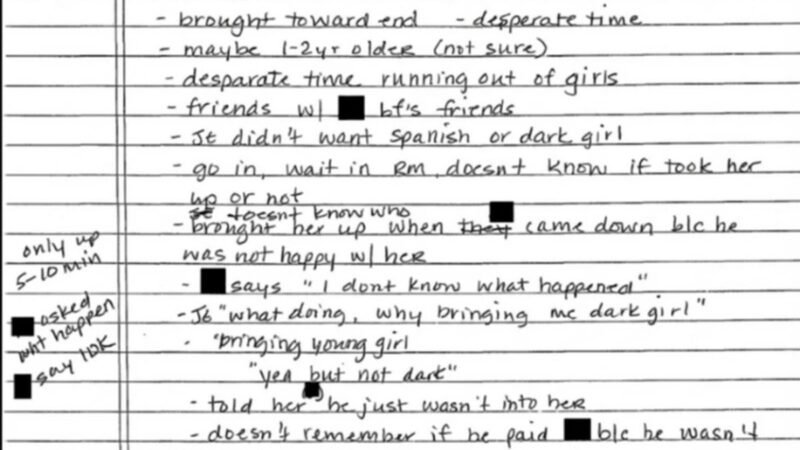 - brought toward end - desperate time
- maybe 1-2yr older (not sure)
- desparate time running out of girls
- friends w/ bf's friends
- JE didn't want Spanish or dark girl
- go in, wait in RM, doesnt know if took her
up or not
doesnt know who
- brought her up when they came down b/c he
was not happy w/ her
only up
5-10 min
- says "I dont know what happened"
asked
what happen
say IDK
- JE "what doing, why bringing me dark girl"
- "bringing young girl
"yea but not dark"
- told her he just wasn't into her
- doesn't remember if he paid b/c he wasn't